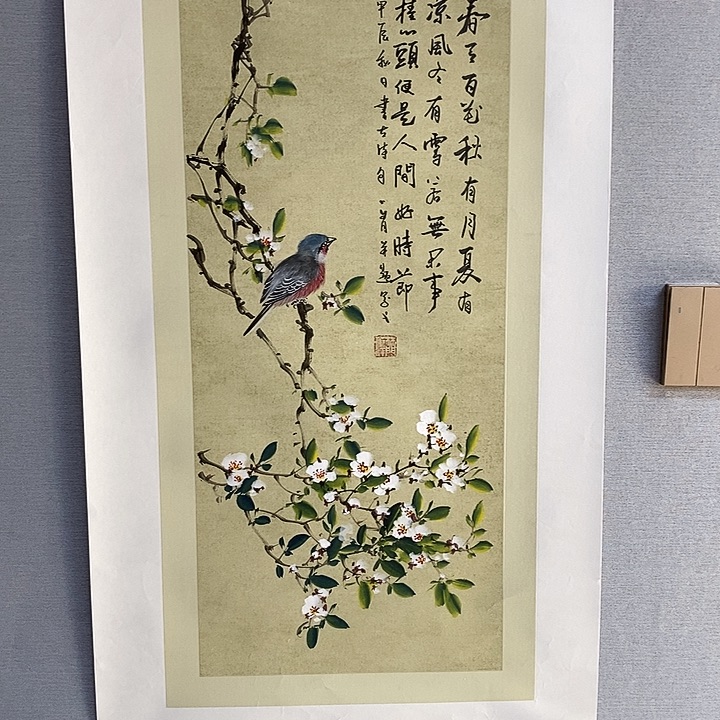 春有百花秋有月夏有
涼風冬有雪若無閑事
掛心頭便是人間好時節
甲辰秋日書古詩